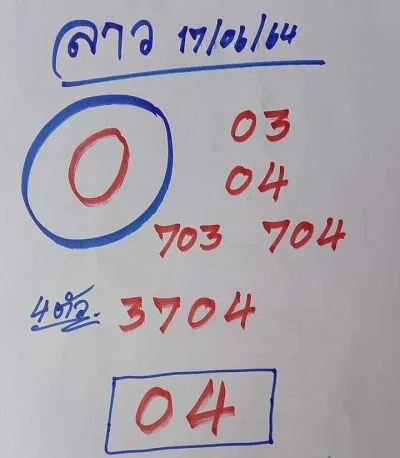 ลาว 17/06/64
0
03
04
703 704
4ตัว. 3704
04